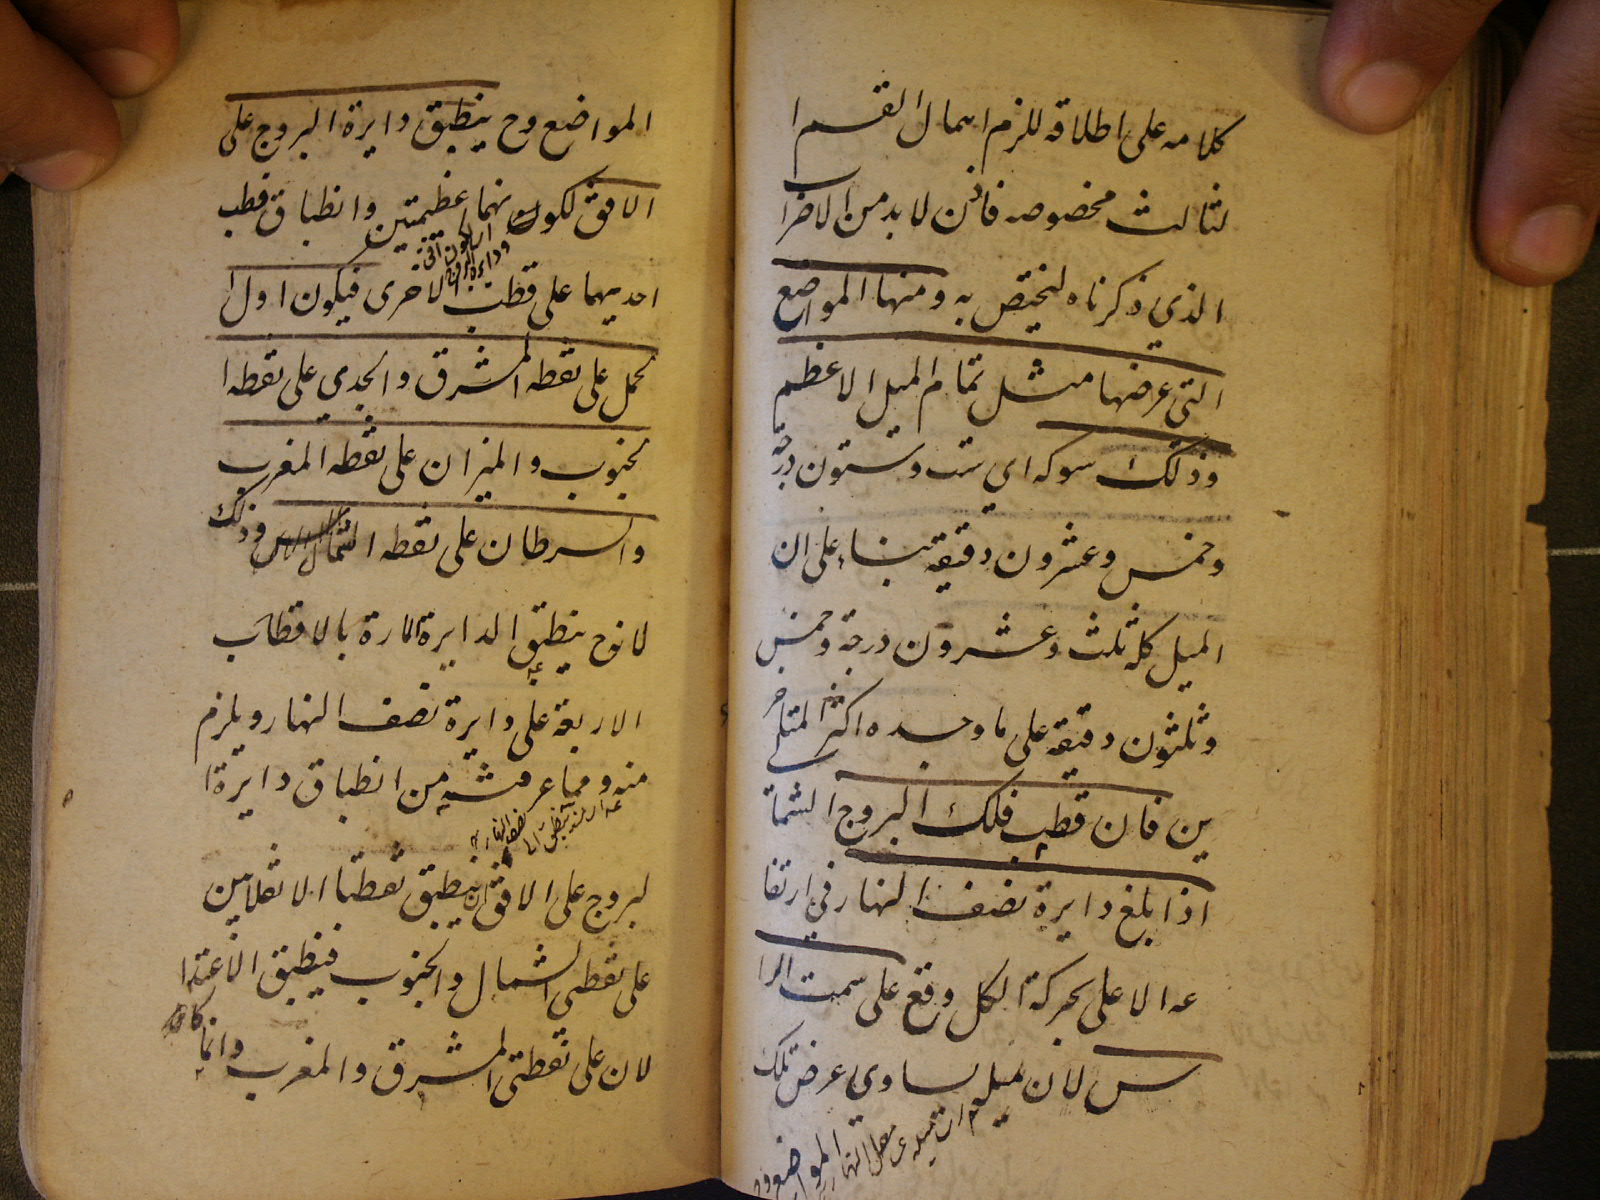 كلامه على اطلاقه للزم اهمال القسم ا
لثالث مخصوصه فاذن لا بد من الاضرا
الذي ذكرناه ليختص به ومنها المواضع
التي عرضها مثل تمام الميل الاعظم
وذلك سوكه اي ست وستون درجة
وخمس وعشرون دقيقة بناء على ان
الميل كله ثلث وعشرون درجة وخمس
وثلثون دقيقة على ما وجده اكثر المتاخر
ين فان قطب فلك البروج الشما
اذا بلغ دايرة نصف النهار في ارتفا
عه الاعلى بحركة الكل وقع على سمت الرا
س لان ميله يساوي عرض تلك
المواضع وح
المواضع وح ينطبق دايرة البروج على
الافق لكونهما عظيمتين وانطباق قطب
احديهما على قطب الاخرى فيكون اول ا
لحمل على نقطه المشرق والجدي على نقطه ا
لجنوب والميزان على نقطه المغرب
والسرطان على نقطه الشمال وذلك
لانه ح ينطبق الدايرة المارة بالاقطاب
الاربعة على دايرة نصف النهار ويلزم
منه ومما عرفته من انطباق دايرة ا
لبروج على الافق ان ينطبق نقطتا الانقلابين
على نقطتي الشمال والجنوب فينطبق الاعتدا
لان على نقطتي المشرق والمغرب وانما كان